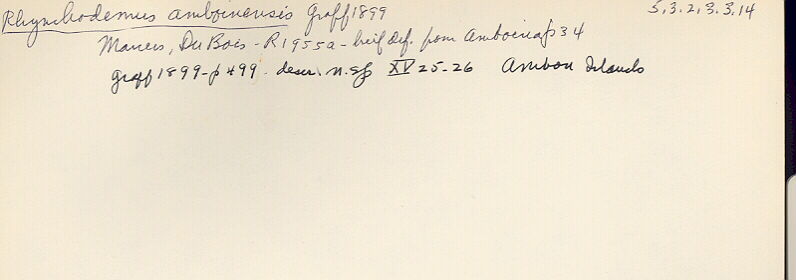 Rhynchodemus amboinensis Graff 1899 5.3.2.3.3.14
Marcus, Du Bois - R 1955a - brief def. from Amboina p 34
Graff 1899 - p 499. descr. n. sp XV 25-26 Ambon Islands